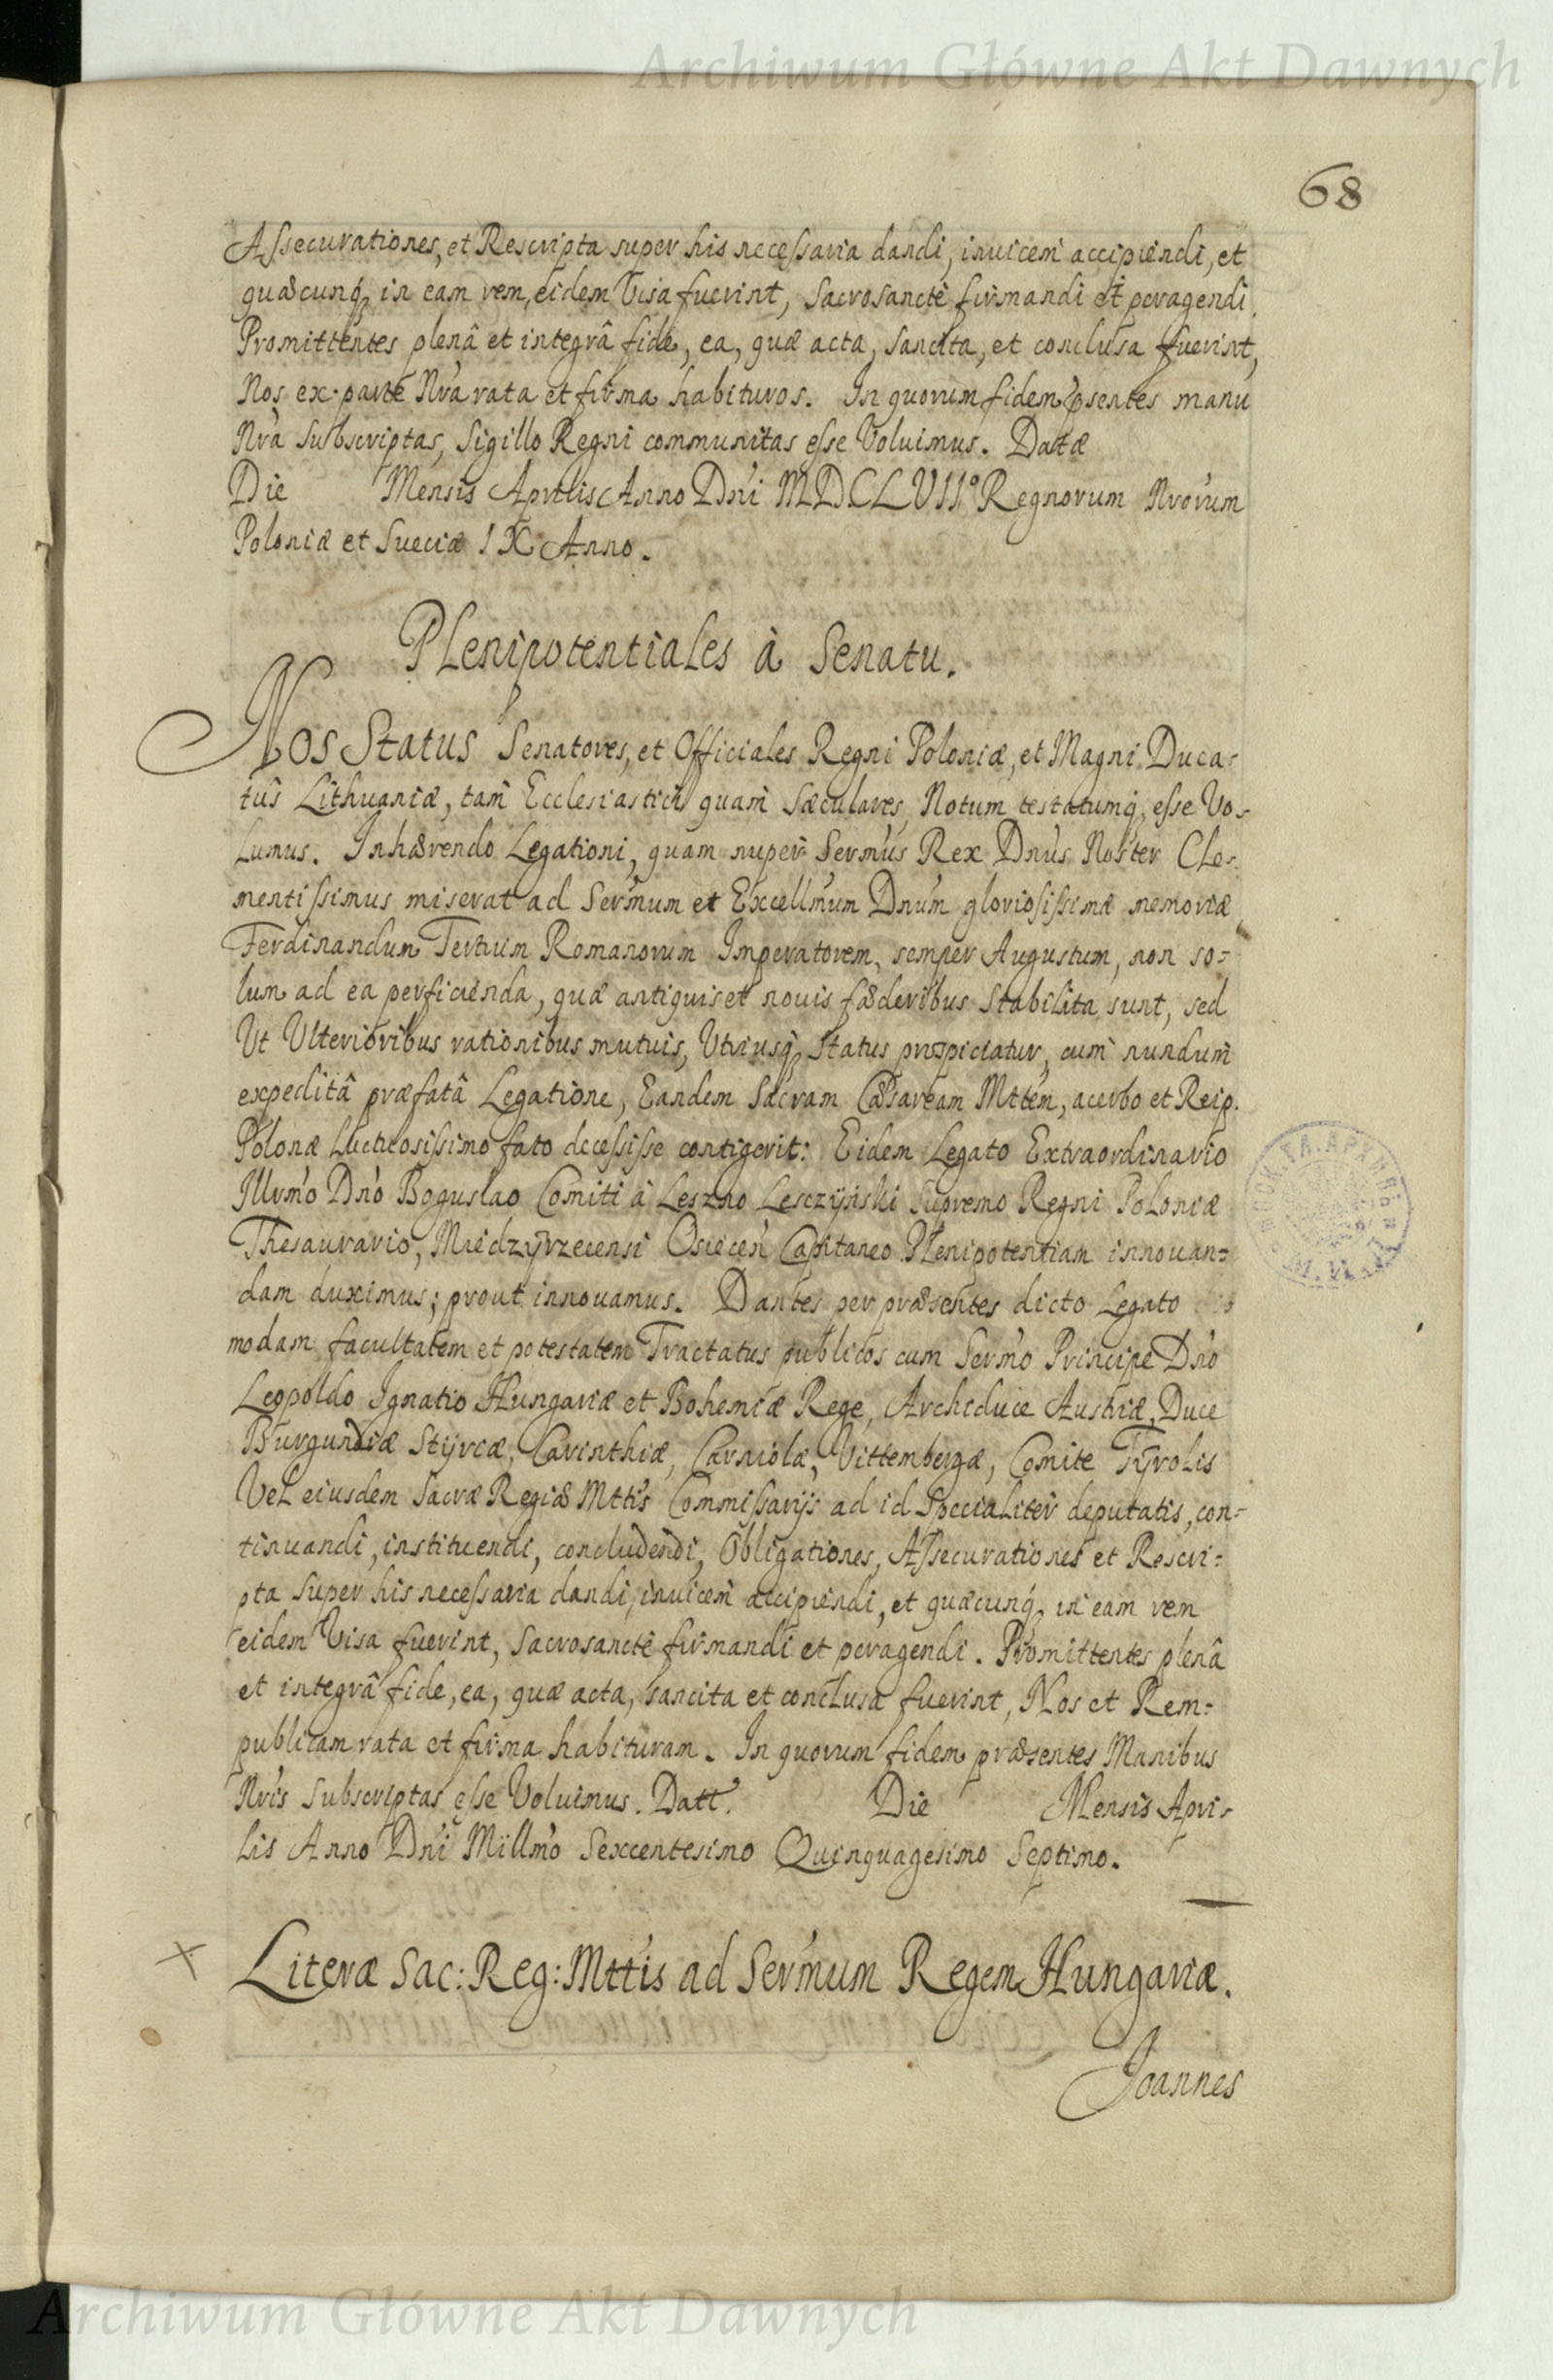 Archiwum Główne Akt Dawnych
68
Assecurationes, et Rescripta super his necessaria dandi, inuicem accipiendi, et
quæcunq, in eam rem, eidem Visa fuerint, Sacrosancte firmandi et peragendi.
Promittentes plenâ et integrâ fide, ea, quæ acta, sancita, et conclusa fuerint,
Nos ex parte Nrâ rata et firma habituros. In quorum fidem psentes manu
Nrâ Subscriptas, Sigillo Regni communitas esse Voluimus. Datæ
Die Mensis Aprilis Anno Dni MDCLVII° Regnorum Nrorum
Poloniæ et Sueciæ IX Anno.
Plenipotentiales à Senatu.
Nos Status Senatores, et Officiales Regni Poloniæ, et Magni Duca-
tûs Lithuaniæ, tam Ecclesiastici quam Sæculares, Notum testatumq, esse Vo-
lumus. Inhærendo Legationi, quam nuper Sermus Rex Dnus Noster Cle-
mentissimus miserat ad Sermum et Excellmum Dnum gloriosissimæ memoriæ
Ferdinandum Tertium Romanorum Imperatorem, semper Augustum, non so-
lum ad ea perficienda, quæ antiquis et nouis fæderibus Stabilita sunt, sed
Ut Ulterioribus rationibus mutuis, Utriusq, Status prospiciatur, cum nundum
expeditâ præfatâ Legatione, Eandem Sacram Cæsaream Mttem, acerbo et Reip.
Polonæ Luctuosissimo fato decessisse contigerit: Eidem Legato Extraordinario
Illrmo Dno Boguslao Comiti à Leszno Lesczyński Supremo Regni Poloniæ
Thesaurario, Miedzyrzecensi Osiecen Capitaneo Plenipotentiam innouan-
dam duximus; prout innouamus. Dantes per præsentes dicto Legato
modam facultatem et potestatem Tractatus publicos cum Sermo Principe Dno
Leopoldo Ignatio Hungariæ et Bohemiæ Rege, Archiduce Austriæ, Duce
Burgundiæ Styriæ, Carinthiæ, Carniolæ, Vittembergæ, Comite Tyrolis
Vel eiusdem Sacræ Regiæ Mttis Commissarijs ad id Specialiter deputatis, con-
tinuandi, instituendi, concludendi, Obligationes, Assecurationes et Rescri-
pta Super his necessaria dandi, inuicem accipiendi, et quæcunq, in eam rem
eidem Visa fuerint, Sacrosancte firmandi et peragendi. Promittentes plenâ
et integrâ fide, ea, quæ acta, sancita et conclusa fuerint, Nos et Rem-
publicam rata et firma habituram. In quorum fidem præsentes Manibus
Nris Subscriptas esse Voluimus. Datt. Die Mensis Apri-
lis Anno Dni Millmo Sexcentesimo Quinquagesimo Septimo.
× Literæ Sac: Reg: Mttis ad Sermum Regem Hungariæ.
Joannes
Archiwum Główne Akt Dawnych